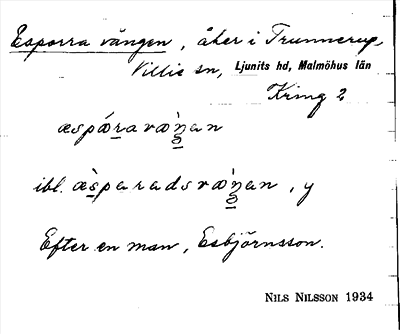 Esporra vången, åker i Trunnerup,
Villie sn, Ljunits hd, Malmöhus län
Kring 2
æspǽravæ̀ŋan
ibl. æ̀sparadsvæ̀ŋan, y
Efter en man, Esbjörnsson.
NILS NILSSON 1934